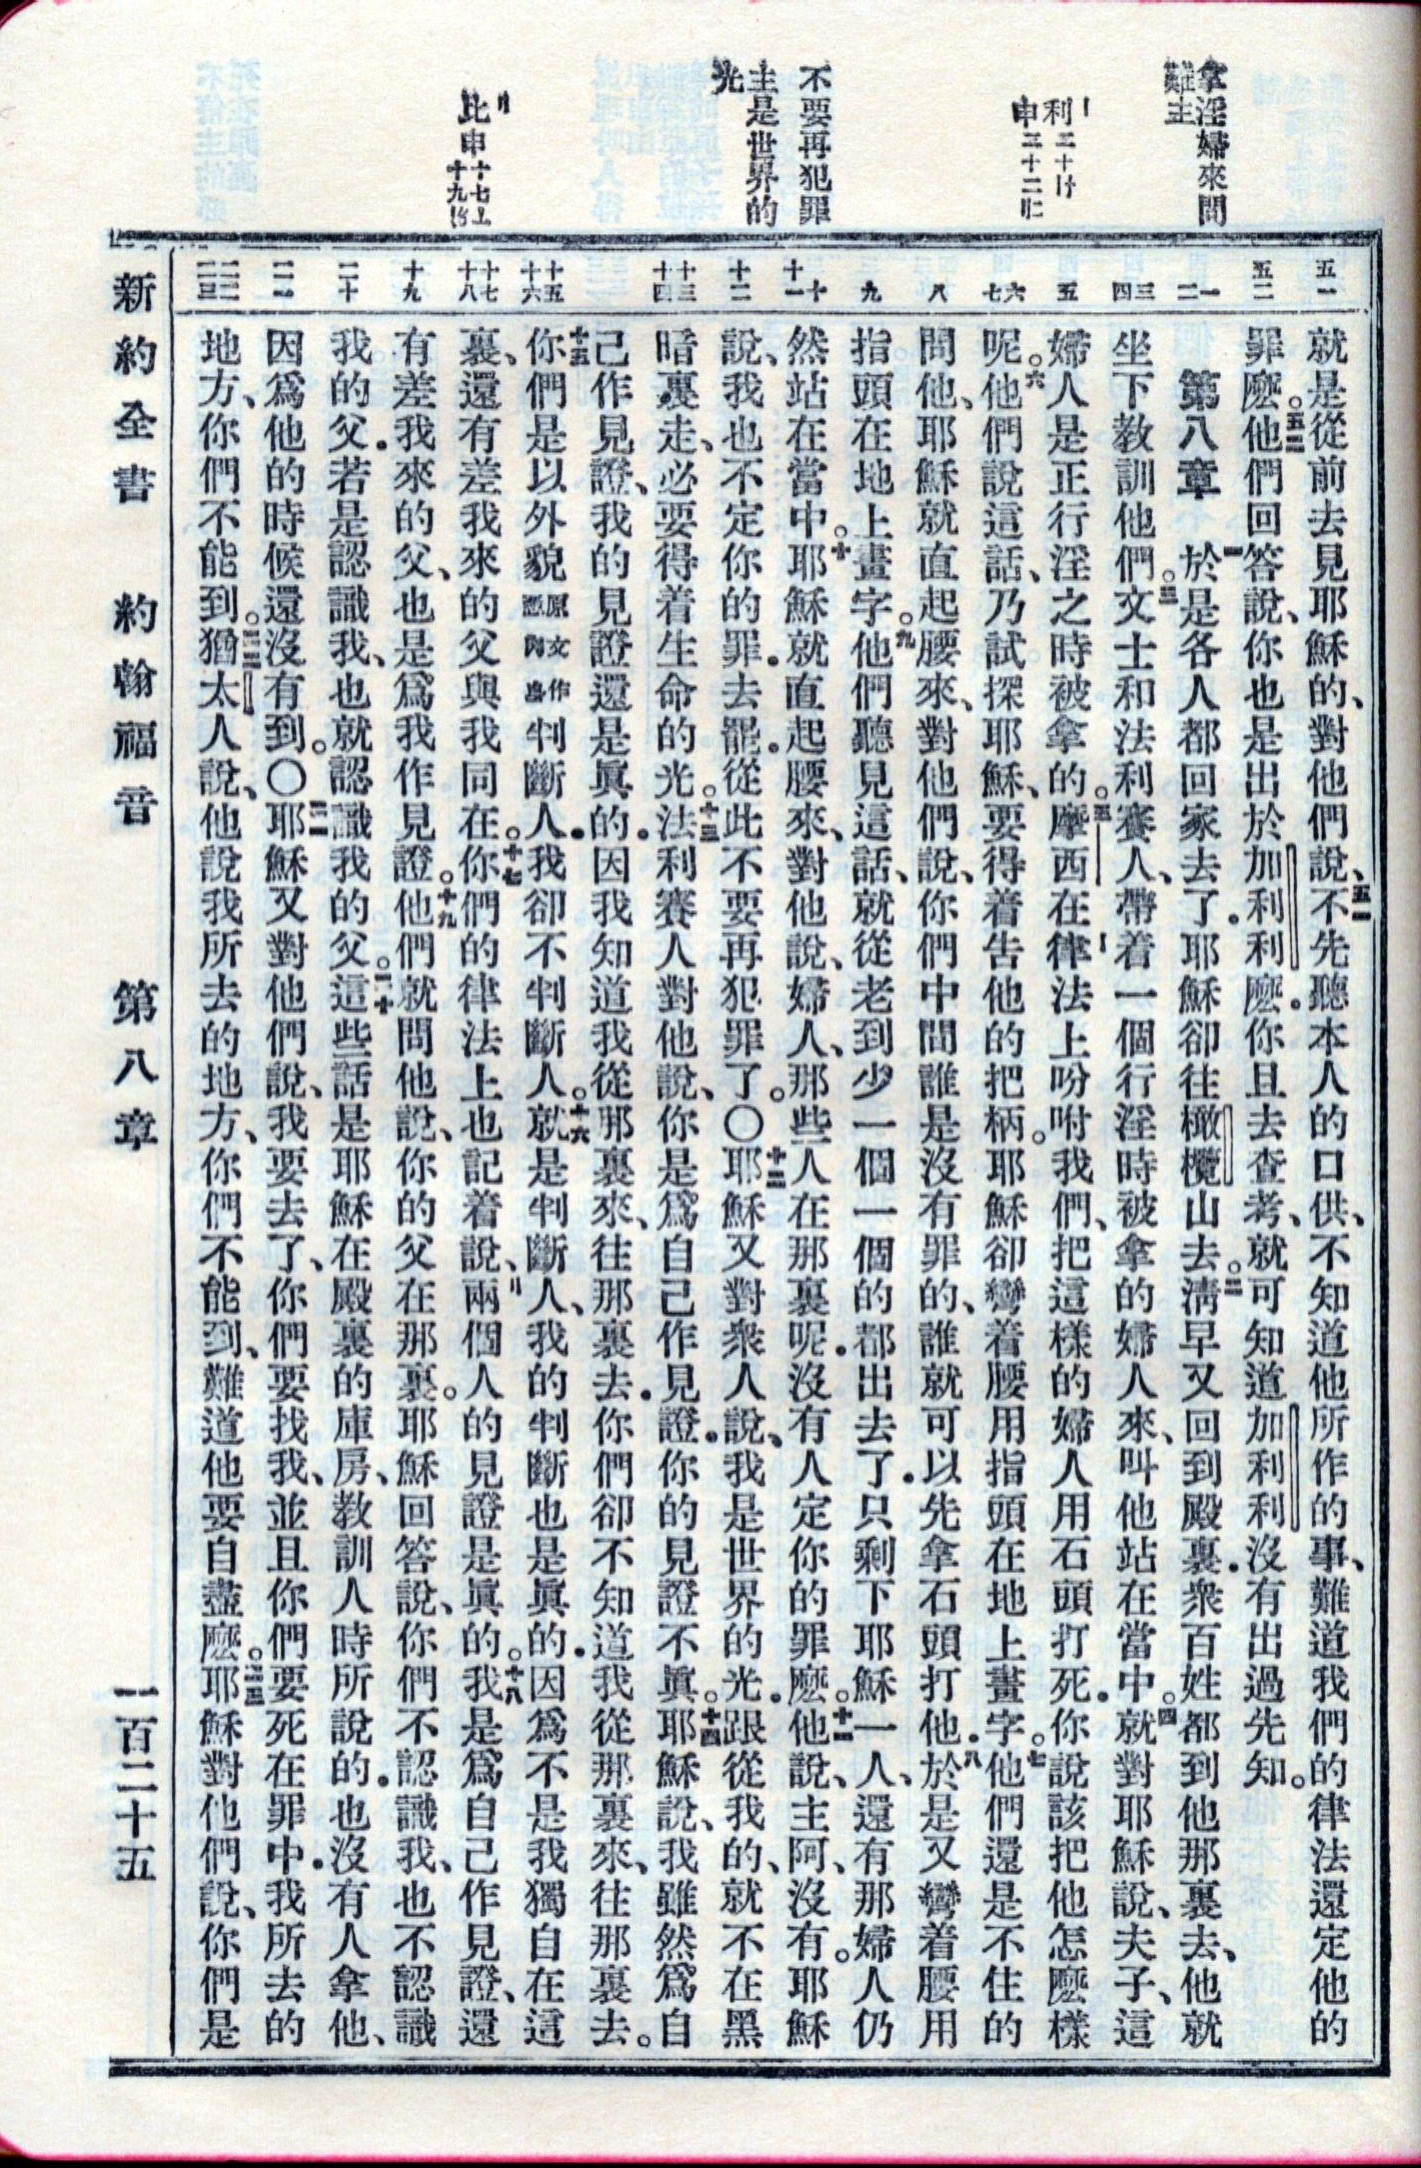 拿淫婦來問
難主
利二十〡十
申二十二〢二
不要再犯罪
主是世界的
光
比申十七〦
十九〸
五一
五二
一
二
三
四
五
六
七
八
九
十
十一
十二
十三
十四
十五
十六
十七
十八
十九
二十
二一
二二
二三
就是從前去見耶穌的、對他們說、五一不先聽本人的口供、不知道他所作的事、難道我們的律法還定他的
罪麽。五二他們回答說、你也是出於加利利麽．你且去查考、就可知道加利利沒有出過先知。
第八章 一於是各人都回家去了．耶穌卻往橄欖山去。二淸早又回到殿裏．衆百姓都到他那裏去、他就
坐下教訓他們。三文士和法利賽人、帶着一個行淫時被拿的婦人來、叫他站在當中。四就對耶穌說、夫子、這
婦人是正行淫之時被拿的。五摩西在律法上吩咐我們、把這樣的婦人用石頭打死．你說該把他怎麽樣
呢。六他們說這話、乃試探耶穌、要得着告他的把柄。耶穌卻彎着腰用指頭在地上畫字。七他們還是不住的
問他、耶穌就直起腰來、對他們說、你們中間誰是沒有罪的、誰就可以先拿石頭打他．八於是又彎着腰用
指頭在地上畫字。九他們聽見這話、就從老到少一個一個的都出去了．只剩下耶穌一人、還有那婦人仍
然站在當中。十耶穌就直起腰來、對他說、婦人、那些人在那裏呢．沒有人定你的罪麽。十一他說、主阿、沒有。耶穌
說、我也不定你的罪．去罷．從此不要再犯罪了。〇十二耶穌又對衆人說、我是世界的光．跟從我的、就不在黑
暗裏走、必要得着生命的光。十三法利賽人對他說、你是爲自己作見證．你的見證不眞。十四耶穌說、我雖然爲自
己作見證、我的見證還是眞的．因我知道我從那裏來、往那裏去．你們卻不知道我從那裏來、往那裏去。
十五你們是以外貌原文作憑肉身判斷人．我卻不判斷人。十六就是判斷人、我的判斷也是眞的．因爲不是我獨自在這
裏、還有差我來的父與我同在。十七你們的律法上也記着說、兩個人的見證是眞的。十八我是爲自己作見證、還
有差我來的父、也是爲我作見證。十九他們就問他說、你的父在那裏。耶穌回答說、你們不認識我、也不認識
我的父．若是認識我、也就認識我的父。二十這些話是耶穌在殿裏的庫房、教訓人時所說的．也沒有人拿他、
因爲他的時候還沒有到。〇二一耶穌又對他們說、我要去了、你們要找我、並且你們要死在罪中．我所去的
地方、你們不能到。二二猶太人說、他說我所去的地方、你們不能到、難道他要自盡麽。二三耶穌對他們說、你們是
新約全書 約翰福音 第八章 一百二十五